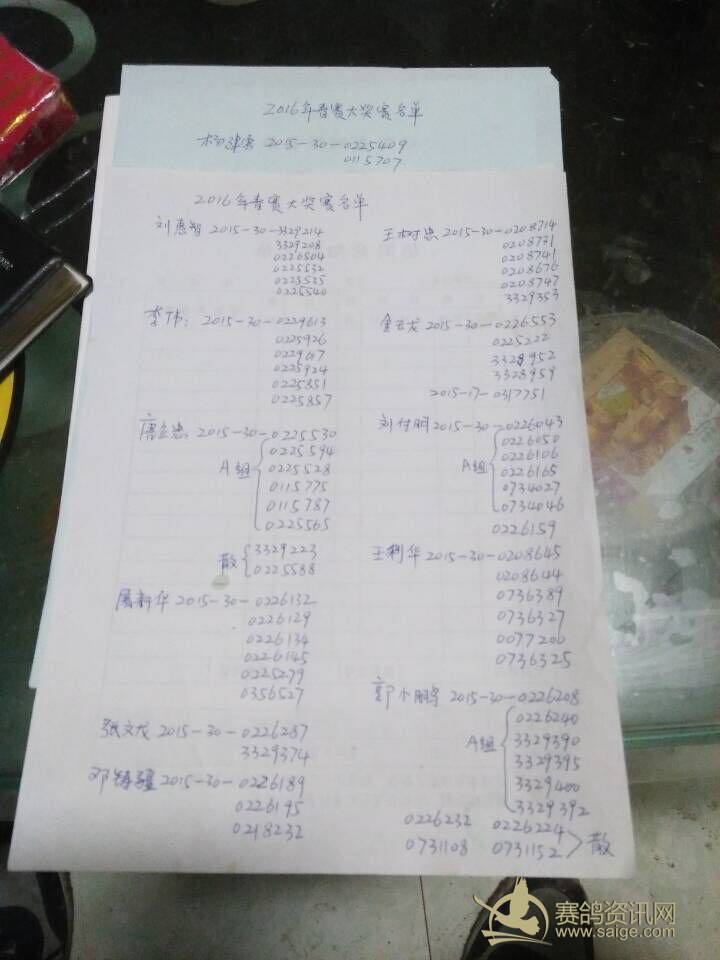 2016年春赛大奖赛名单
2015-30-0225409
0115707
2016年春赛大奖赛名单
刘惠智 2015-30-3329214
3329208
0226504
0225532
0225535
0225540
李伟: 2015-30-0229613
0225926
0229617
0225924
0225851
0225857
唐立忠 2015-30-0225530
0225594
A组 0225528
0115775
0115787
0225565
散 3329223
0225588
屠新华 2015-30-0226132
0226129
0226134
0226145
0225279
0356527
张文龙 2015-30-0226287
3329374
邓铸疆 2015-30-0226189
0226195
0218232
王树忠 2015-30-0208714
0208731
0208741
0208676
0208747
3329353
金玉龙 2015-30-0226553
0225222
3328952
3328959
2015-17-0317751
刘付明 2015-30-0226043
0226050
0226106
A组 0226165
0734027
0734046
0226159
王利华 2015-30-0208645
0208644
0736389
0736327
0077206
0736325
郭小鹏 2015-30-0226208
0226240
A组 3329390
3329395
3329400
3329392
0226232 0226224
0731108 0731152 散
赛鸽资讯网
www.saige.com